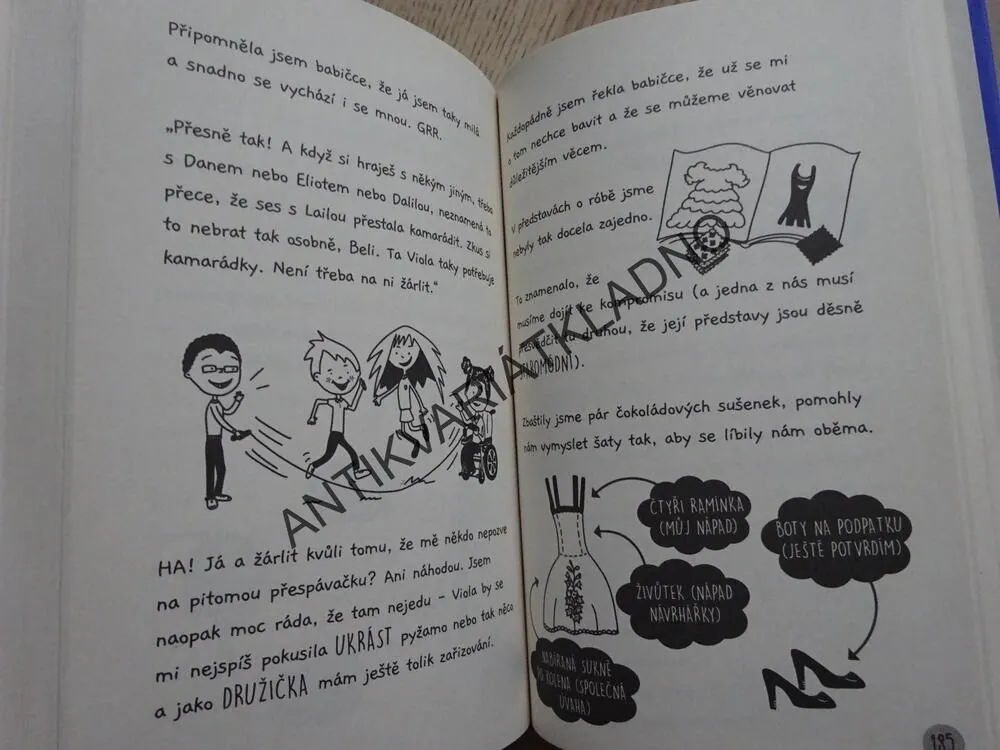 Připomněla jsem babičce, že já jsem taky milá
a snadno se vychází i se mnou. GRR.
„Přesně tak! A když si hraješ s někým jiným, třeba
s Danem nebo Eliotem nebo Dalilou, neznamená to
přece, že ses s Lailou přestala kamarádit. Zkus si
to nebrat tak osobně, Beli. Ta Viola taky potřebuje
kamarádky. Není třeba na ni žárlit.“
HA! Já a žárlit kvůli tomu, že mě někdo nepozve
na pitomou přespávačku? Ani náhodou. Jsem
naopak moc ráda, že tam nejedu – Viola by se
mi nejspíš pokusila UKRÁST pyžamo nebo tak něco
a jako DRUŽIČKA mám ještě tolik zařizování.
Každopádně jsem řekla babičce, že už se mi
o tom nechce bavit a že se můžeme věnovat
důležitějším věcem.
V představách o róbě jsme
nebyly tak docela zajedno.
To znamenalo, že
musíme dojít ke kompromisu (a jedna z nás musí
přesvědčit tu druhou, že její představy jsou děsně
STAROMÓDNÍ).
Zbaštily jsme pár čokoládových sušenek, pomohly
nám vymyslet šaty tak, aby se líbily nám oběma.
ČTYŘI RAMÍNKA
(MŮJ NÁPAD)
BOTY NA PODPATKU
(JEŠTĚ POTVRDÍM)
ŽIVŮTEK (NÁPAD
NÁVRHÁŘKY)
NABÍRANÁ SUKNĚ
PO KOLENA (SPOLEČNÁ
ÚVAHA)
185
ANTIKVARIÁTKLADNO